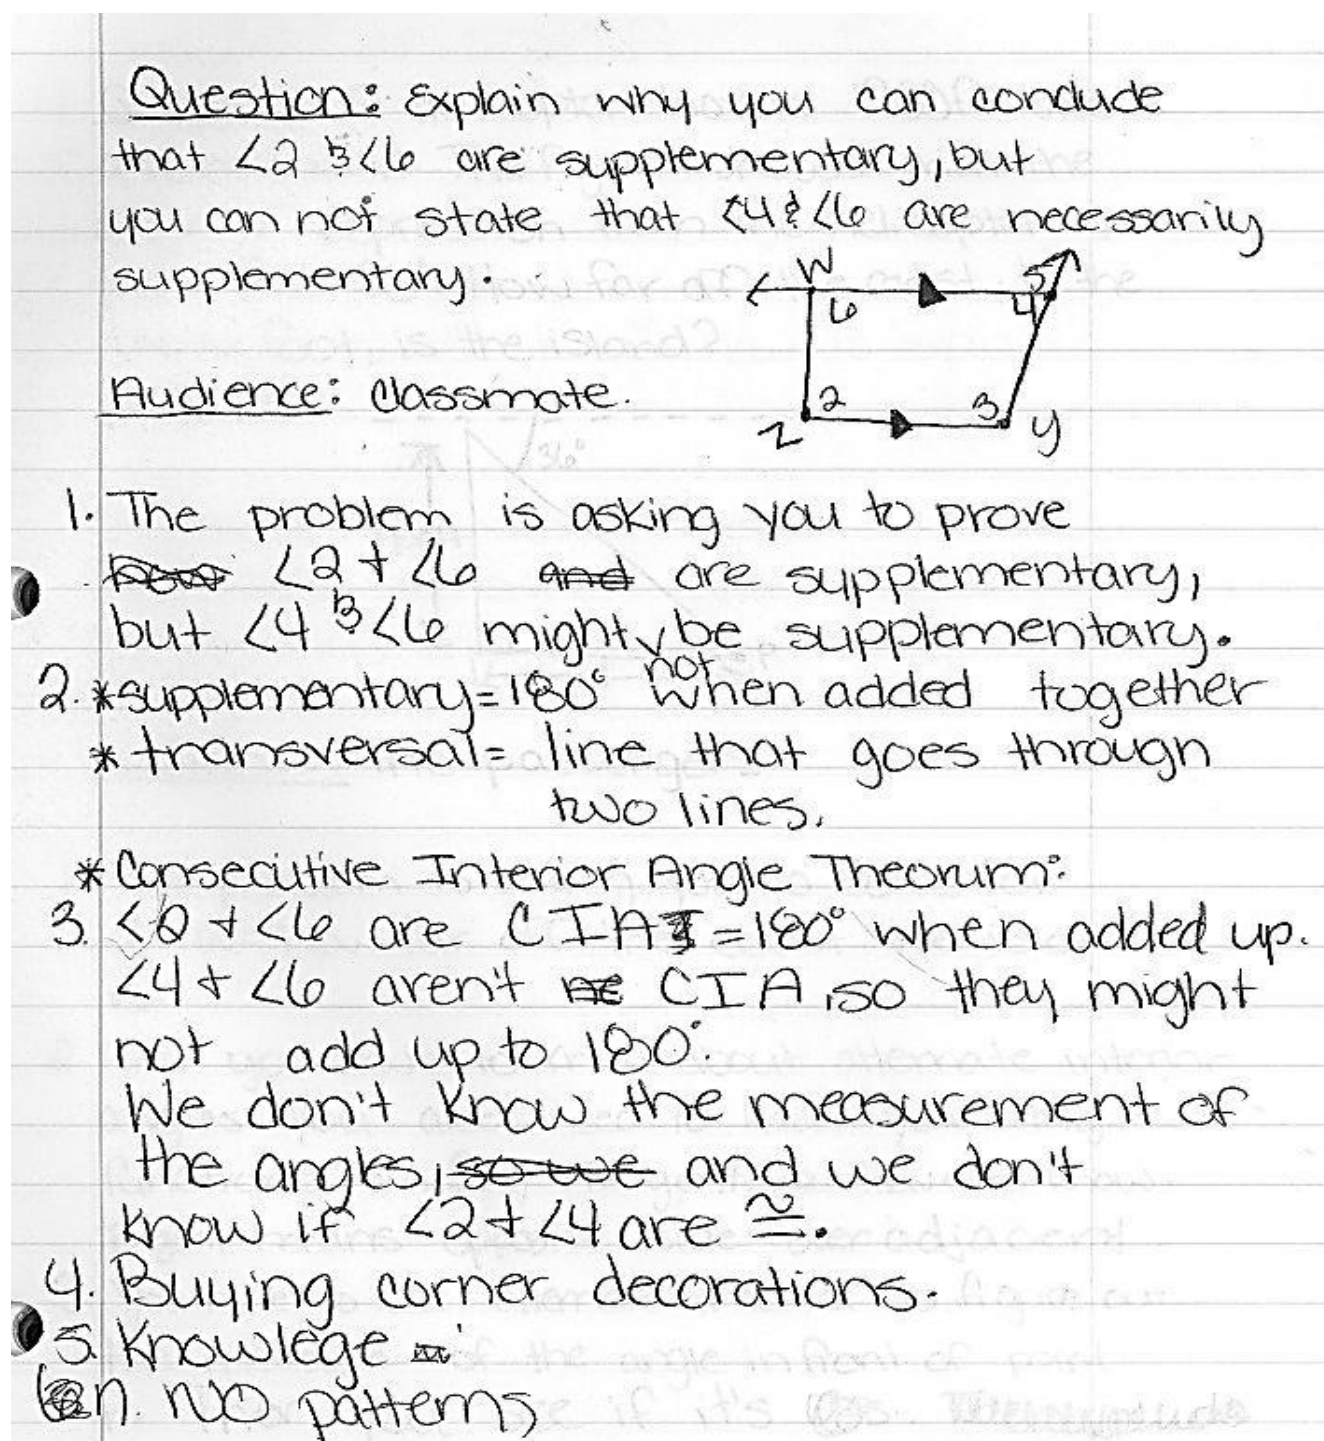 Question: Explain why you can conclude
that <2 & <6 are supplementary, but
you can not state that <4 & <6 are necessarily
supplementary.
W
5
6
4
Audience: Classmate.
2
3
Z
y
1. The problem is asking you to prove
<2 + <6 and are supplementary,
but <4 & <6 might not be supplementary.
2. *supplementary=180° when added together
* transversal= line that goes through
two lines.
* Consecutive Interior Angle Theorum:
3. <2 + <6 are CIA =180° when added up.
<4 + <6 aren't CIA, so they might
not add up to 180°.
We don't know the measurement of
the angles, so we and we don't
know if <2 + <4 are ≅.
4. Buying corner decorations.
5. Knowlege
n. No patterns